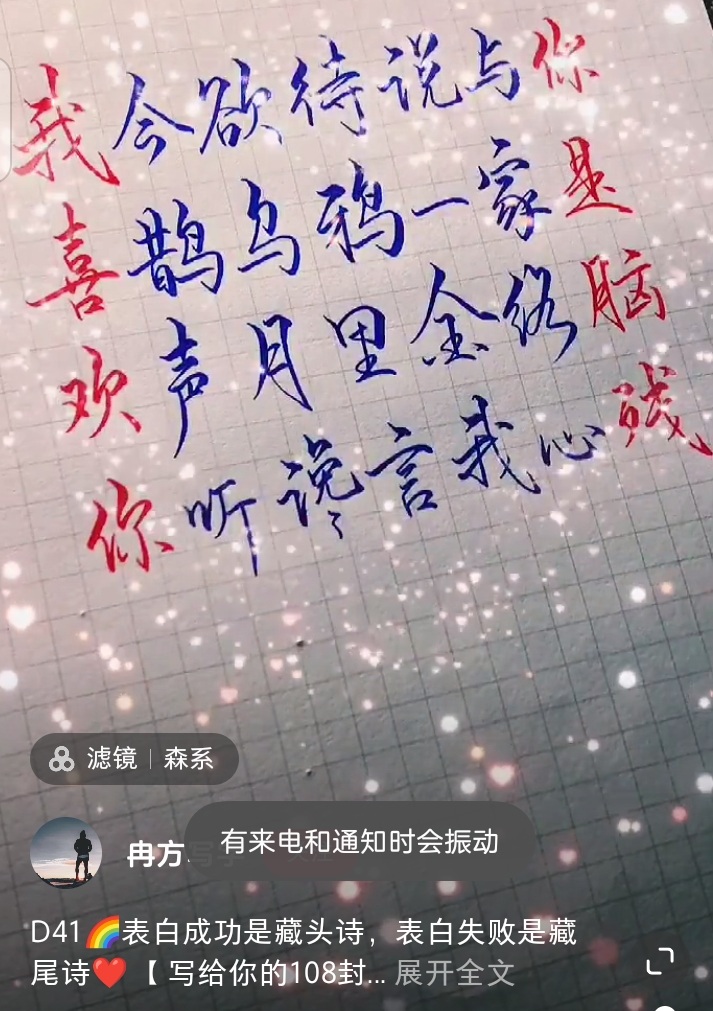 我今欲待说与你
喜鹊乌鸦一家是
欢声月里金络脑
你听谗言我心残
滤镜 | 森系
冉方
有来电和通知时会振动
D41🌈表白成功是藏头诗，表白失败是藏
尾诗❤️【 写给你的108封... 展开全文